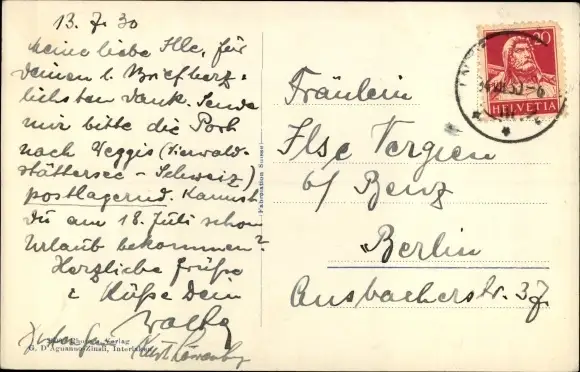 13. 7. 30
Meine liebe Ilse, für
Deinen l. Brief herz-
lichsten Dank. Sende
mir bitte die Post
nach Weggis (Vierwald-
stättersee - Schweiz)
postlagernd. Kannst
Du am 18. Juli schon
Urlaub bekommen?
Herzliche Grüße
& Küße Dein
G. D'Aguanno-Zinsli, Interlaken
Fräulein
Ilse Vergien
b/ Benz
Berlin
Ansbacherstr. 37
20
HELVETIA